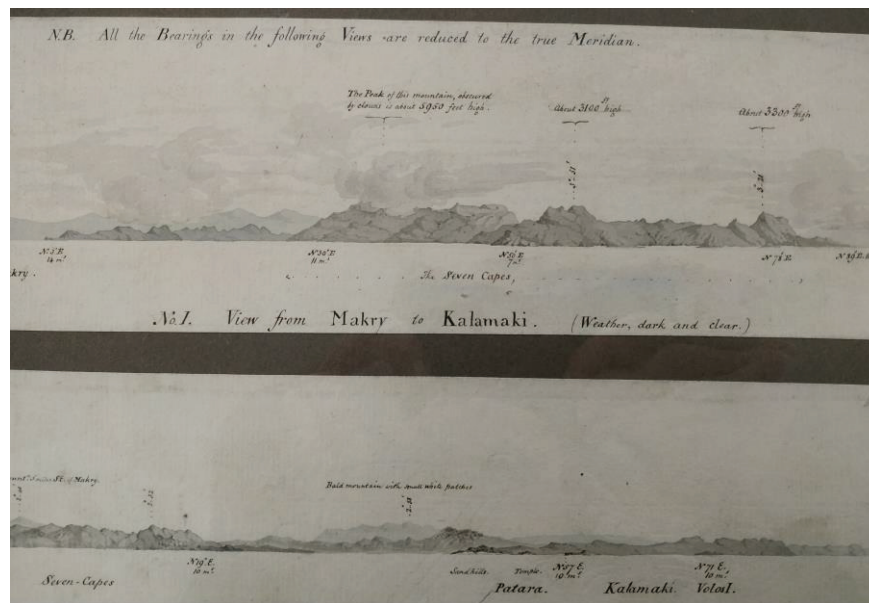 N.B. All the Bearings in the following Views are reduced to the true Meridian.
The Peak of this mountain, obscured
by clouds is about 5950 feet high.
About 3100 ft high
About 3300 ft high
11 m.s
The Seven Capes,
No. I. View from Makry to Kalamaki. (Weather, dark and clear.)
of Makry
Bald mountain with small white patches
N 19° E.
10 m.s
Sandhills. Temple. N 57 E.
10 m.s
N 71 E.
10 m.s
Seven-Capes
Patara. Kalamaki. Volos I.